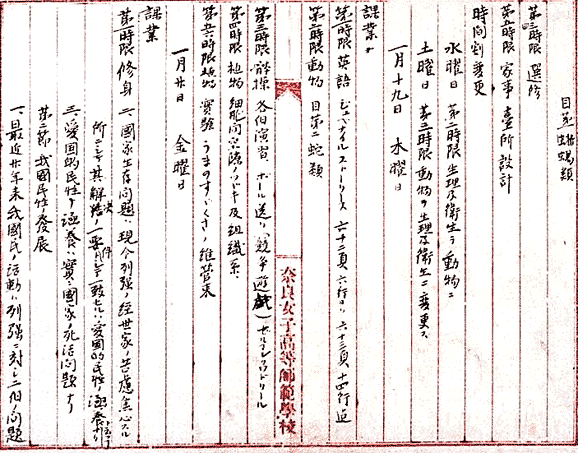 目第一 蜥蜴類
第三時限 選修
第五時限 家事 臺所設計
時間割変更
水曜日 第二時限生理及衛生ヲ動物ニ
土曜日 第三時限動物ヲ生理及衛生ニ変更ス
一月十九日 木曜日
課業
第一時限 英語 ジュベナイルストーリース 六十二頁六行ヨリ 六十三頁十四行迄
第二時限 動物 目第二 蛇類
奈良女子高等師範學校
第三時限 體操 各個演習、ボール送リ(競争遊戯)
第四時限 植物 細胞間 及組織系
第五六時限 植物 実験 うまのすゞくさノ維管束
一月廿日 金曜日
課業
第一時限 修身 二、國家生存問題ハ現今列強ノ経世家ノ苦慮焦心スル
所ニシテ其解決ノ一要件トシテ一致セルハ愛国的民性ノ涵養
三、愛国的民性ノ涵養ハ實ニ國家ノ死活問題ナリ
第二節 我國民性ノ發展
一、最近廿年来我國民ノ活動ハ列強ニ対シ二個ノ問題